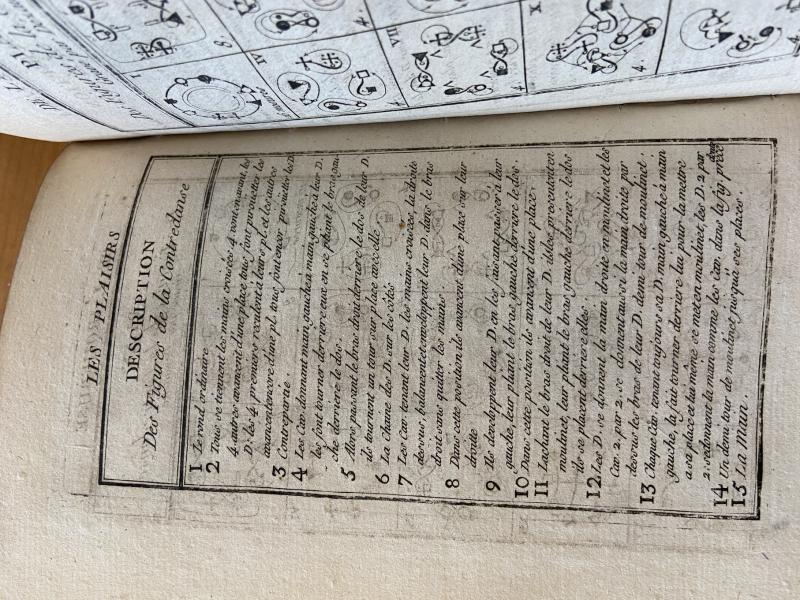 LES PLAISIRS
DESCRIPTION
Des Figures de la Contredanse
1 Le rond ordinaire
2 Tous se tiennent les mains croisées 4 vont en avant, les
4 autres avancent d'une place tous font pirouetter les
D: les 4 premiers reculent à leurs pl. et les autres
avancent encore d'une pl. tous font encor pirouetter les D.
3 Contrepartie.
4 Les Cav. donnant main gauche à main gauche à leur D.
les font tourner derriere eux en se pliant le bras gau-
che derriere le dos.
5 Alors passant les bras droit derriere le dos de leur D.
ils tournent un tour sur place avec elle
6 La Chaine des D. sur les cotés
7 Les Cav. tenant leur D. les mains croisées, la droite
dessus, balancent et enveloppent leur D. dans le bras
droit sans quitter les mains.
8 Dans cette position ils avancent d'une place sur leur
droite
9 Ils developpent leur D. en les faisant passer à leur
gauche, leur pliant le bras gauche derriere le dos.
10 Dans cette position ils avancent d'une place.
11 Lachant le bras droit de leur D. ils les
moulinet, leur pliant le bras gauche derriere le dos
ils se placent derriere elles.
12 Les D. se donnent la main droite en moulinet et les
Cav. 2. par 2. se donnent aussi la main droite par
dessus les bras de leur D. demi tour de moulinet.
13 Chaque Cav. tenant toujours sa D. main gauche à main
gauche, la fait tourner derriere lui pour la mettre
a sa place et lui même se met en moulinet, les D. 2 par
2. se donnent la main comme les Cav. dans la fig. préce
dente
14 Un demi tour de moulinet jusqu'à ses places
15 La Main.
I
IV
VII
X
8
4.